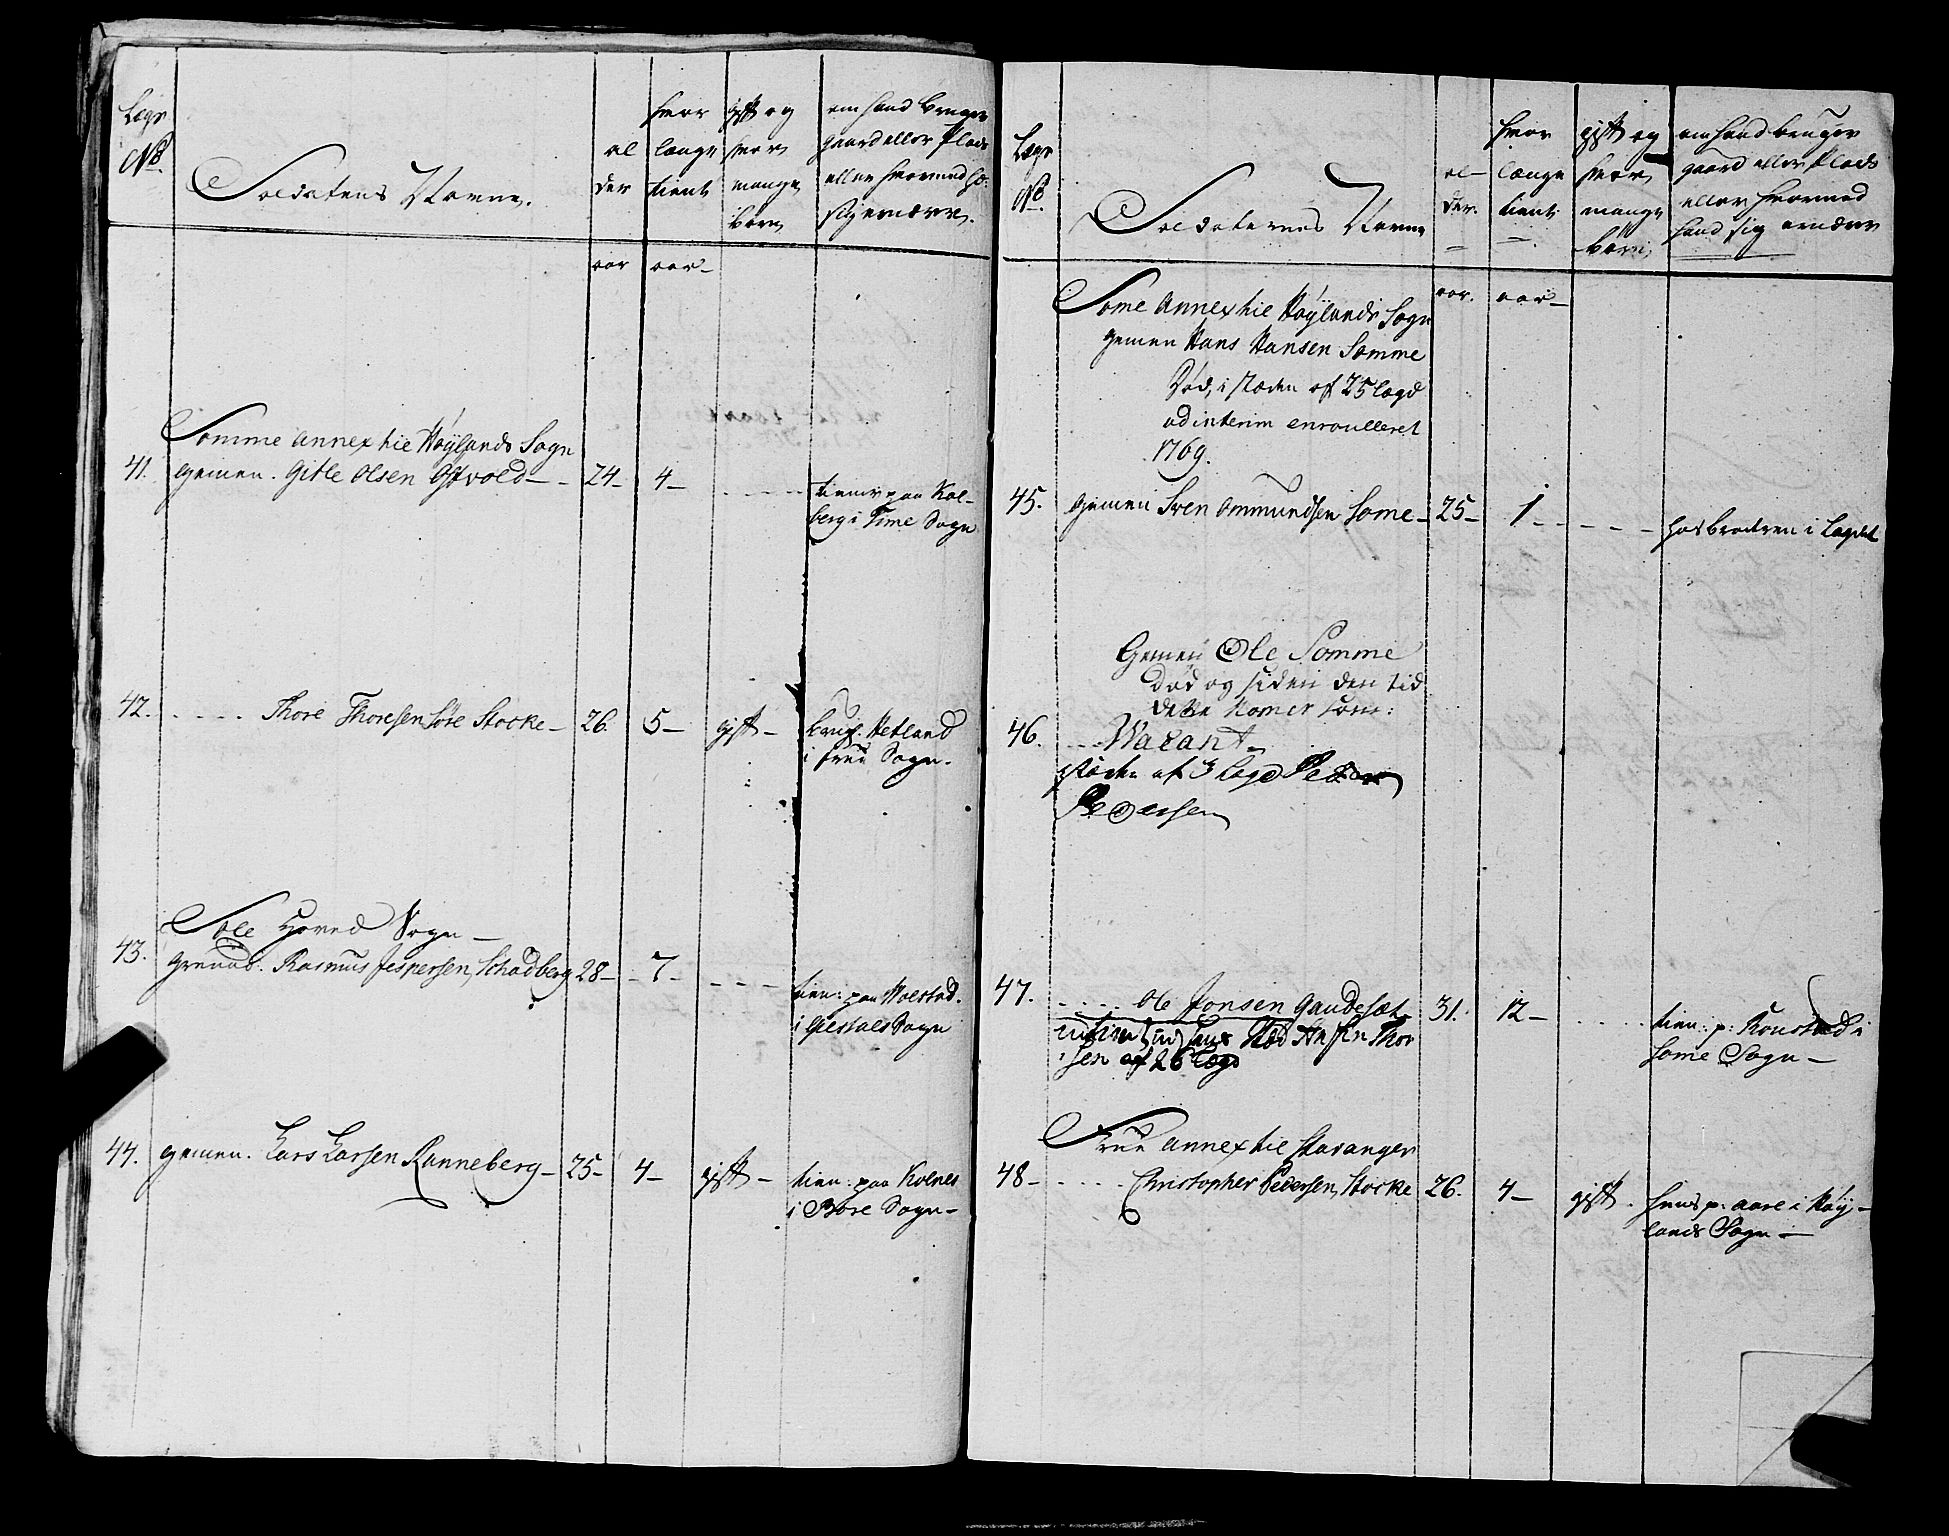 Lægs
No.
Soldatens Navne.
al
der
hvor
længe
tient
gift og
hvor
mange
børn
om hand bruger
gaard eller Plads
eller hvormed h:
sig ernærer.
aar
aar
Somme Annex til Höylands Sogn
41. gemen. Gitle Olsen Ostvold 24 4 tiener paa Kol-
berg i Time Sogn
42. Thore Thoresen Söre Stocke 26. 5 gift brug. Hetland
i frue Sogn.
Sole Hoved Sogn
43. grenad. Rasmus Jespersen Schadberg 28 7
tien: paa Holstad
i Giestals Sogn
44. gemen. Lars Larsen Ranneberg 25 4 gift tien: paa Kolnes
i Sogn
Lægs
No.
Soldaternes Navne
al-
der.
hvor
længe
tient
gift og
hvor
mange
børn
om hand bruger
gaard eller Plads
eller hvormed
hand sig ernærer
aar. aar
Some Annex til Höylands Sogn
gemen Hans Hansen Somme
Död, i stæden af 25 lægd
ad interim enroulleret
1769.
45. gemen Sven Ommundsen Some 25 1 hos broderen i Lægdet
Gemen Ole Somme
död og siden den tid
dette Nomer som:
46. Wacant
stæden af 3 Lægd Peder
Pedersen
47. Ole Jonsen Gaudesæt 31. 12 tien: p: Konstad i
Some Sogn
sen af 26 Lægd
Frue Annex til Stavanger
48 Christopher Pedersen Stocke 26. 4 gift. huus p: aase i Höy-
lands Sogn